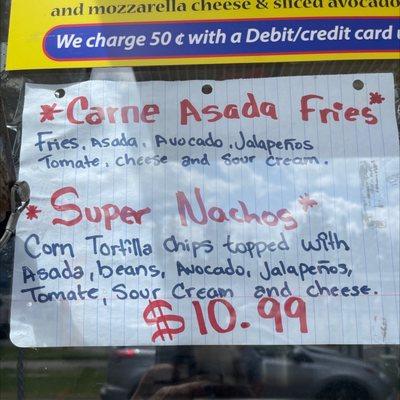 and mozzarella cheese & sliced avocado
We charge 50 ¢ with a Debit/credit card
*Carne Asada Fries*
Fries, Asada, Avocado, Jalapeños
Tomate, cheese and Sour cream.
*Super Nachos*
Corn Tortilla chips topped with
Asada, beans, Avocado, Jalapeños,
Tomate, Sour Cream and cheese.
$10.99